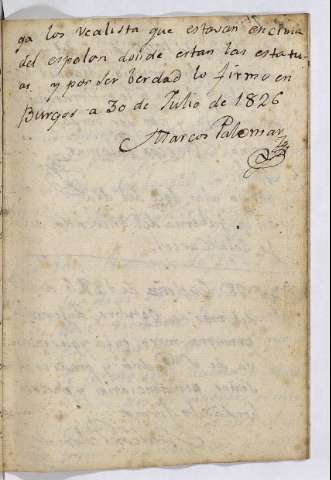 ga los realista que estavan encima
del espolon donde estan las estatu-
as y por ser berdad lo firmo en
Burgos a 30 de Julio de 1826
Marcos Palomar